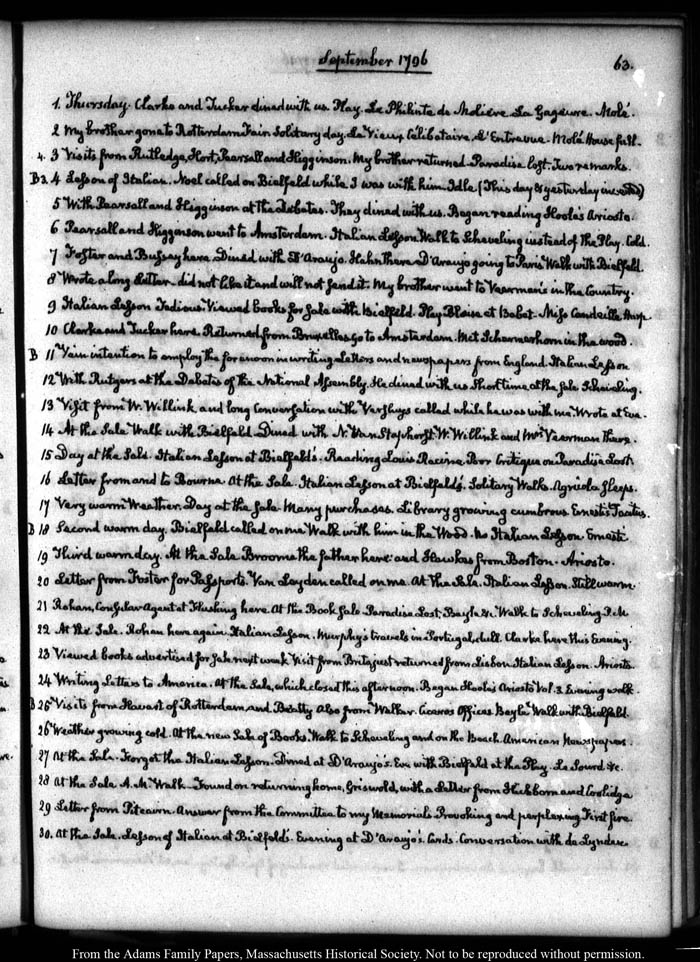 September 1796
63.
1. Thursday. Clarke and Tucker dined with us. Play. Le Philinte de Moliere La Gageure. Molé.
2 My brother gone to Rotterdam Fair Solitary day. Le Vieux Célibataire. L'Entrevue. Molé House full.
4. 3 Visits from Rutledge, Hort, Pearsall and Higginson. My brother returned. Paradise lost. Two remarks.
B 3. 4 Lesson of Italian. Noel called on Bielfeld while I was with him. Idle (This day & yesterday inverted)
5 With Pearsall and Higginson at the Debates. They dined with us. Began reading Hoole's Ariosto.
6 Pearsall and Higginson went to Amsterdam. Italian Lesson Walk to Scheveling instead of the Play. Cold.
7 Foster and Bussey here. Dined with D'Araujo. Hahn there D'Araujo going to Paris Walk with Bielfeld.
8 Wrote a long Letter. did not like it and will not send it. My brother went to Veerman's in the Country.
9 Italian Lesson Tedious. Viewed books for Sale with Bielfeld. Play Blaise et Babet. Miss Candeille Harp.
10 Clarke and Tucker here. Returned from Bruxelles go to Amsterdam. Met Schermerhorn in the wood.
B 11 Vain intention to employ the forenoon in writing Letters and newspapers from England. Italian Lesson
12 With Rutgers at the Debates of the National Assembly. He dined with us Short time at the Sale Scheveling.
13 Visit from W. Willink and long Conversation with Vershuys called while he was with me. Wrote at Eve.
14 At the Sale Walk with Bielfeld. Dined with N. Van Staphorst. W. Willink and Mrs Veerman there.
15 Day at the Sale. Italian Lesson at Bielfeld's. Reading Louis Racine. Poor Critique on Paradise Lost
16 Letter from and to Bourne. At the Sale. Italian Lesson at Bielfeld's. Solitary Walk. Agricola sleeps.
17 Very warm Weather. Day at the Sale. Many purchases. Library growing cumbrous. Ernesti's Tacitus.
B 18 Second warm day. Bielfeld called on me Walk with him in the Wood. No Italian Lesson Ernesti
19 Third warm day. At the Sale Broome the father here and Hawkes from Boston. Ariosto.
20 Letter from Foster for Passports. Van Leyden called on me. At the Sale. Italian Lesson. Still warm
21 Rohan, Consular Agent at Flushing here. At the Book Sale Paradise Lost, Bayle &c. Walk to Scheveling P.M
22 At the Sale. Rohan here again. Italian Lesson. Murphy's travels in Portugal, dull. Clarke here this Evening.
23 Viewed books advertised for Sale next week Visit from Brito, just returned from Lisbon Italian Lesson. Ariosto.
24 Writing Letters to America. At the Sale, which closed this afternoon. Began Hoole's Ariosto Vol. 3. Evening walk.
B 25 Visits from Stewart of Rotterdam, and Beatty Also from Walker. Ciceros Offices Bayle Walk with Bielfeld.
26 Weather growing cold. At the new Sale of Books. Walk to Scheveling and on the Beach. American Newspapers.
27 At the Sale. Forgot the Italian Lesson. Dined at D'Araujo's. Eve with Bielfeld at the Play. Le Sourd &c.
28 At the Sale A.M. Walk. Found on returning home, Griswold, with a Letter from Hichborn and Coolidge
29 Letter from Pitcairn. Answer from the Committee to my Memorials. Provoking and perplexing. First fire.
30. At the Sale. Lesson of Italian at Bielfeld's. Evening at D'Araujo's. Cards. Conversation with de Lynden.
From the Adams Family Papers, Massachusetts Historical Society. Not to be reproduced without permission.